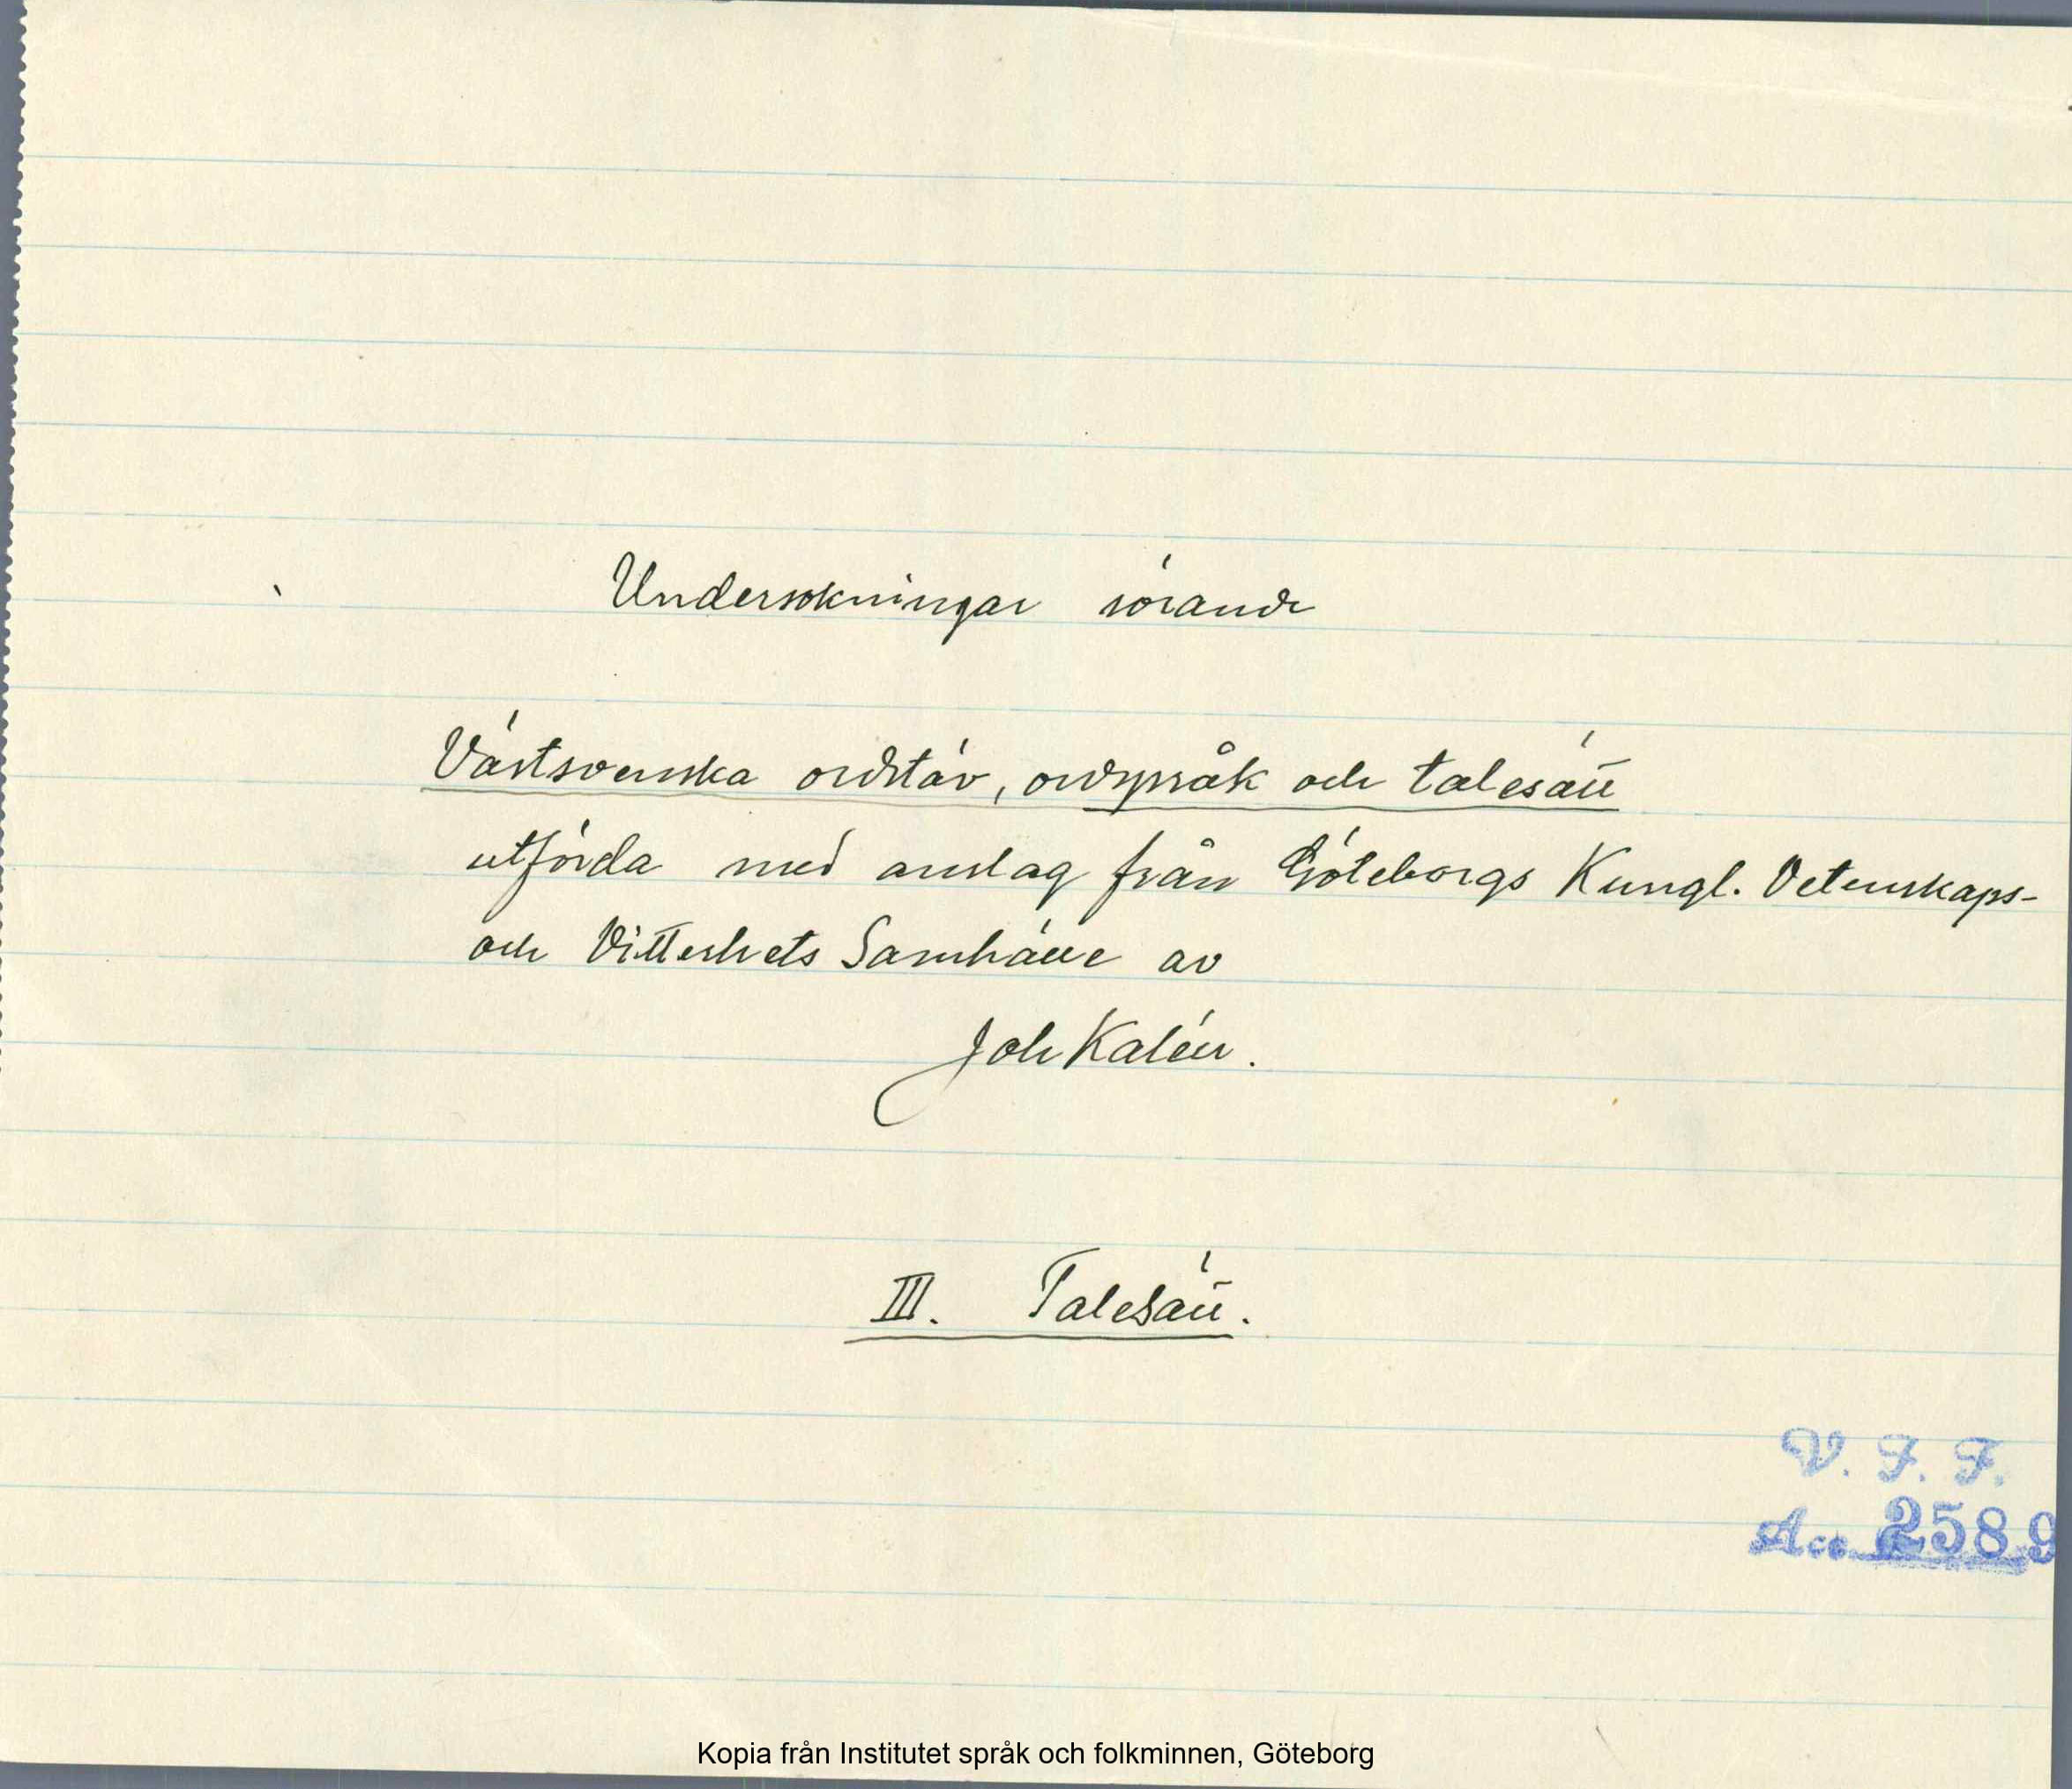 Undersökningar rörande
Västsvenska ordstäv, ordspråk och talesätt
utförda med anslag från Göteborgs Kungl. Vetenskaps-
och Vitterhets Samhälle av
Joh Kalén.
III. Talesätt.
V. F. F.
Acc. 2589
Kopia från Institutet språk och folkminnen, Göteborg